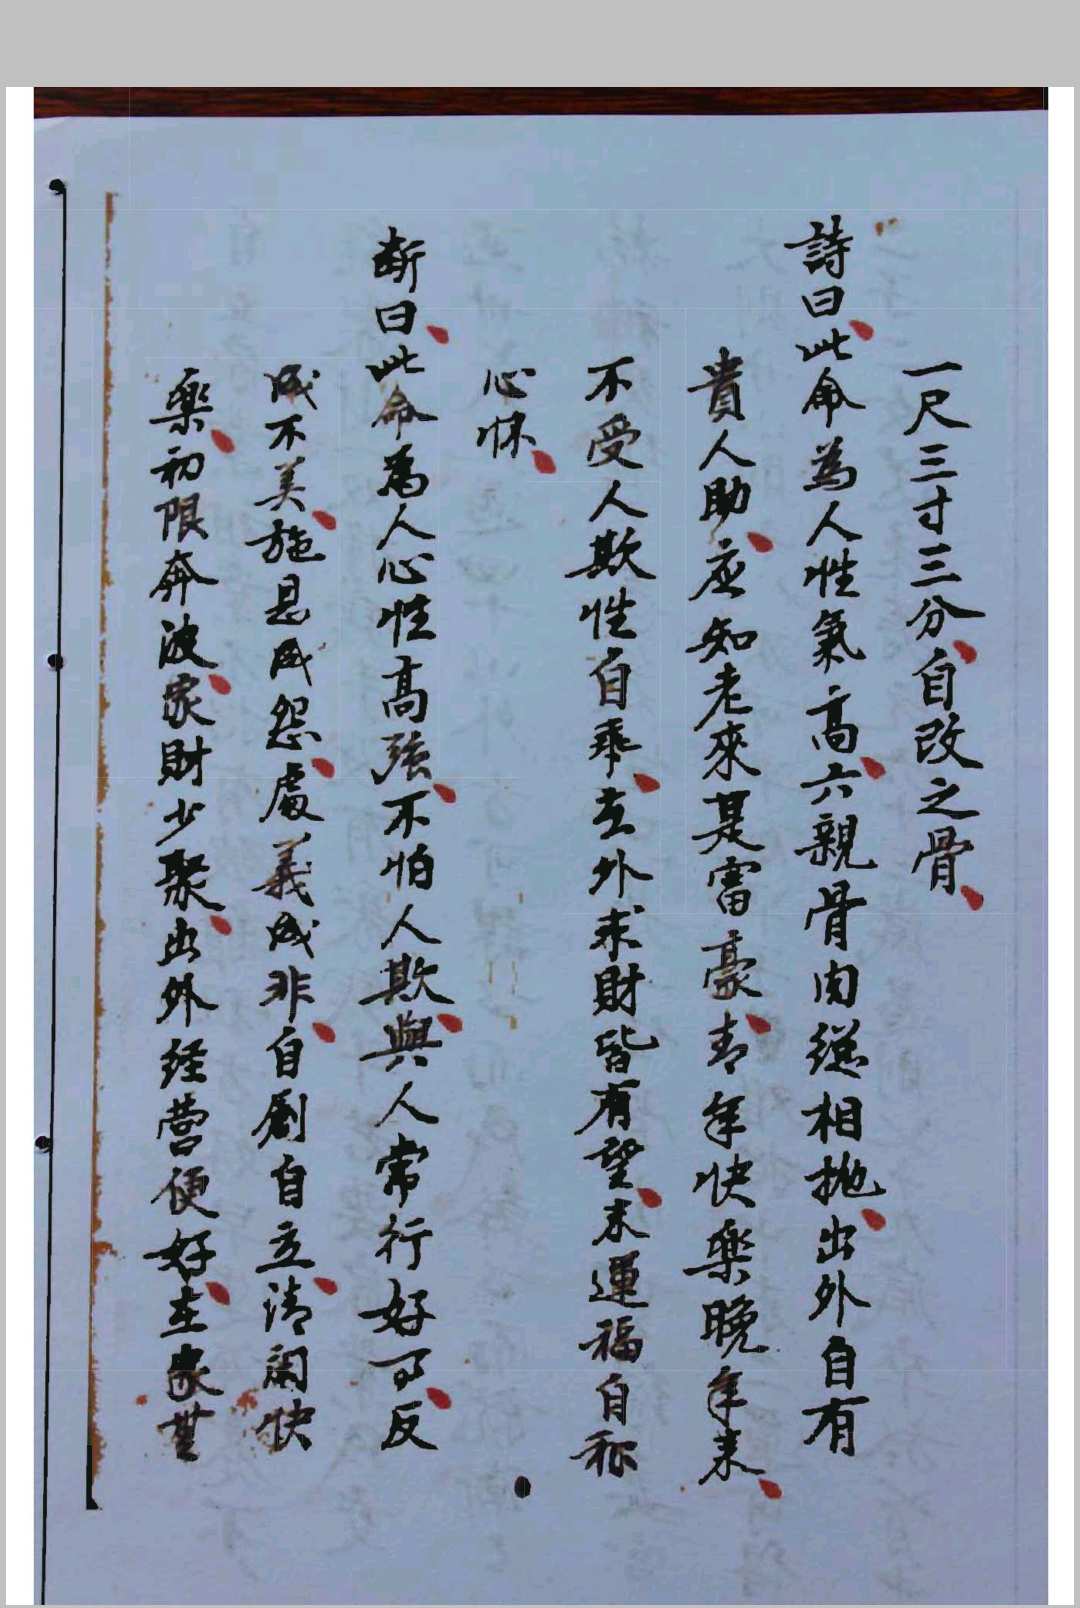 一尺三寸三分自改之骨
詩曰此命為人性氣高六親骨肉總相拋出外自有
貴人助应知老來是富豪青年快樂晚年来
不受人欺性自乖立外求財皆有望末運福自称
心怀
断曰此命為人心性高強不怕人欺與人常行好可反
成不美施恩成怨處義成非自創自立清閑快
樂初限奔波家財少聚出外経營便好在家世